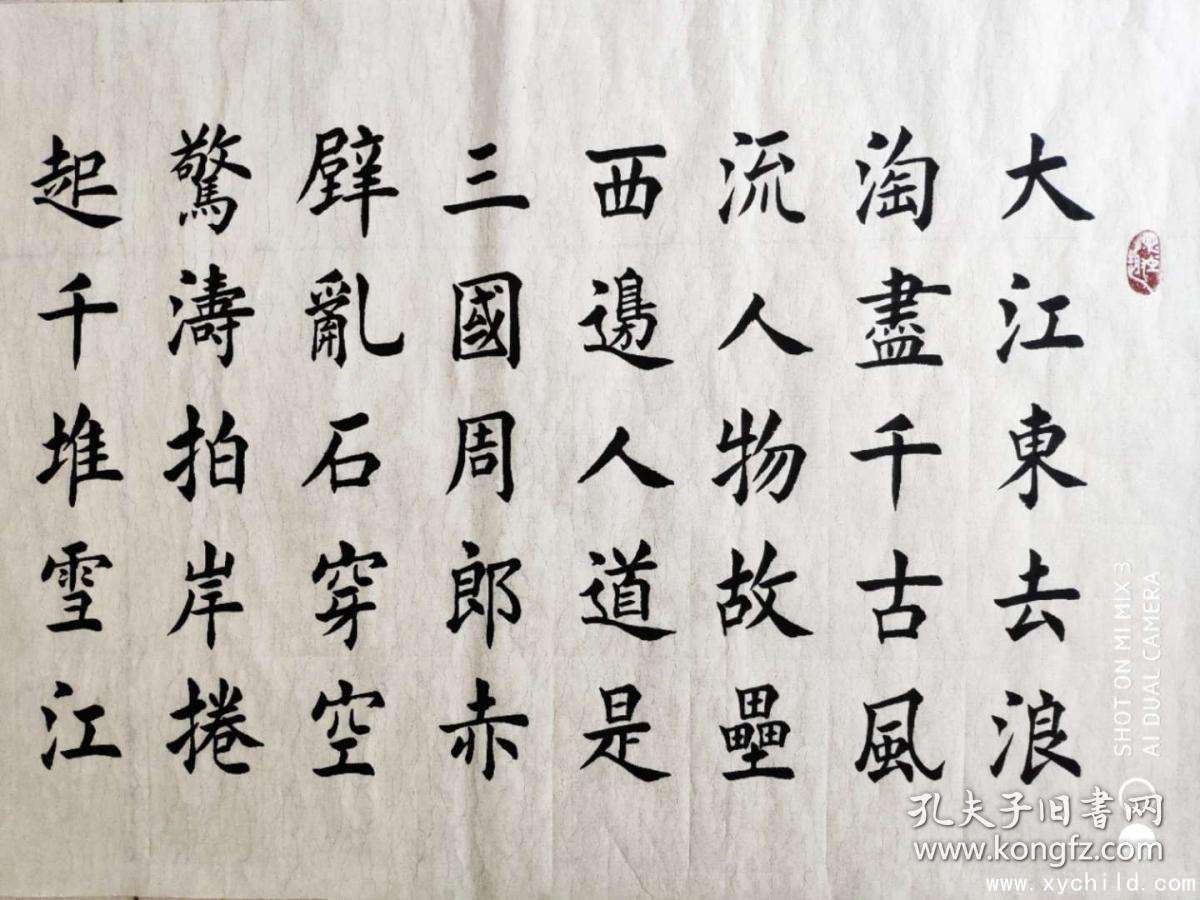 大江東去浪
淘盡千古風
流人物故壘
西邊人道是
三國周郎赤
壁亂石穿空
驚濤拍岸捲
起千堆雪江
SHOT ON MI MIX 3
AI DUAL CAMERA
孔夫子旧書网
www.kongfz.com
www.xychild.com